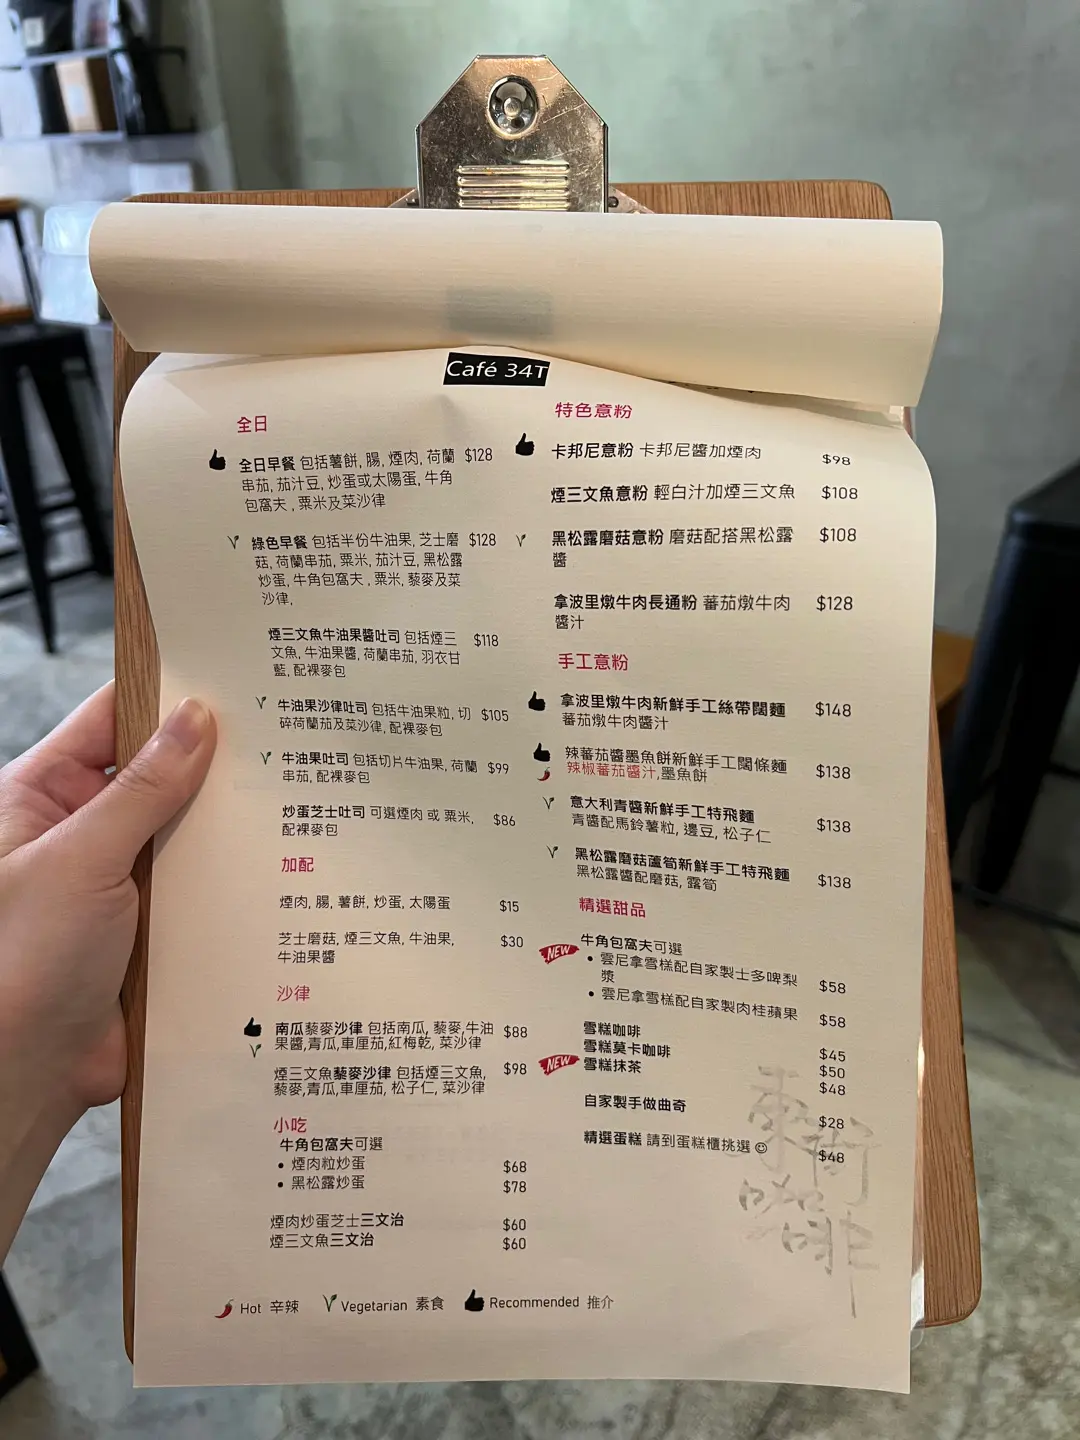 Café 34T
全日
全日早餐 包括薯餅, 腸, 煙肉, 荷蘭 $128
串茄, 茄汁豆, 炒蛋或太陽蛋, 牛角
包窩夫 , 粟米及菜沙律
綠色早餐 包括半份牛油果, 芝士磨 $128
菇, 荷蘭串茄, 粟米, 茄汁豆, 黑松露
炒蛋, 牛角包窩夫 , 粟米, 藜麥及菜
沙律,
煙三文魚牛油果醬吐司 包括煙三 $118
文魚, 牛油果醬, 荷蘭串茄, 羽衣甘
藍, 配裸麥包
牛油果沙律吐司 包括牛油果粒, 切 $105
碎荷蘭茄及菜沙律, 配裸麥包
牛油果吐司 包括切片牛油果, 荷蘭 $99
串茄, 配裸麥包
炒蛋芝士吐司 可選煙肉 或 粟米, $86
配裸麥包
加配
煙肉, 腸, 薯餅, 炒蛋, 太陽蛋 $15
芝士磨菇, 煙三文魚, 牛油果, $30
牛油果醬
沙律
南瓜藜麥沙律 包括南瓜, 藜麥,牛油 $88
果醬,青瓜,車厘茄,紅梅乾, 菜沙律
煙三文魚藜麥沙律 包括煙三文魚, $98
藜麥,青瓜,車厘茄, 松子仁, 菜沙律
小吃
牛角包窩夫可選
• 煙肉粒炒蛋 $68
• 黑松露炒蛋 $78
煙肉炒蛋芝士三文治 $60
煙三文魚三文治 $60
特色意粉
卡邦尼意粉 卡邦尼醬加煙肉 $98
煙三文魚意粉 輕白汁加煙三文魚 $108
黑松露磨菇意粉 磨菇配搭黑松露 $108
醬
拿波里燉牛肉長通粉 蕃茄燉牛肉 $128
醬汁
手工意粉
拿波里燉牛肉新鮮手工絲帶闊麵 $148
蕃茄燉牛肉醬汁
辣蕃茄醬墨魚餅新鮮手工闊條麵 $138
辣椒蕃茄醬汁,墨魚餅
意大利青醬新鮮手工特飛麵 $138
青醬配馬鈴薯粒, 邊豆, 松子仁
黑松露磨菇蘆筍新鮮手工特飛麵 $138
黑松露醬配磨菇, 露筍
精選甜品
NEW 牛角包窩夫可選
• 雲尼拿雪糕配自家製士多啤梨 $58
漿
• 雲尼拿雪糕配自家製肉桂蘋果 $58
雪糕咖啡 $45
雪糕莫卡咖啡 $50
NEW 雪糕抹茶 $48
自家製手做曲奇 $28
精選蛋糕 請到蛋糕櫃挑選☺ $48
東街
咖啡
Hot 辛辣 Vegetarian 素食 Recommended 推介